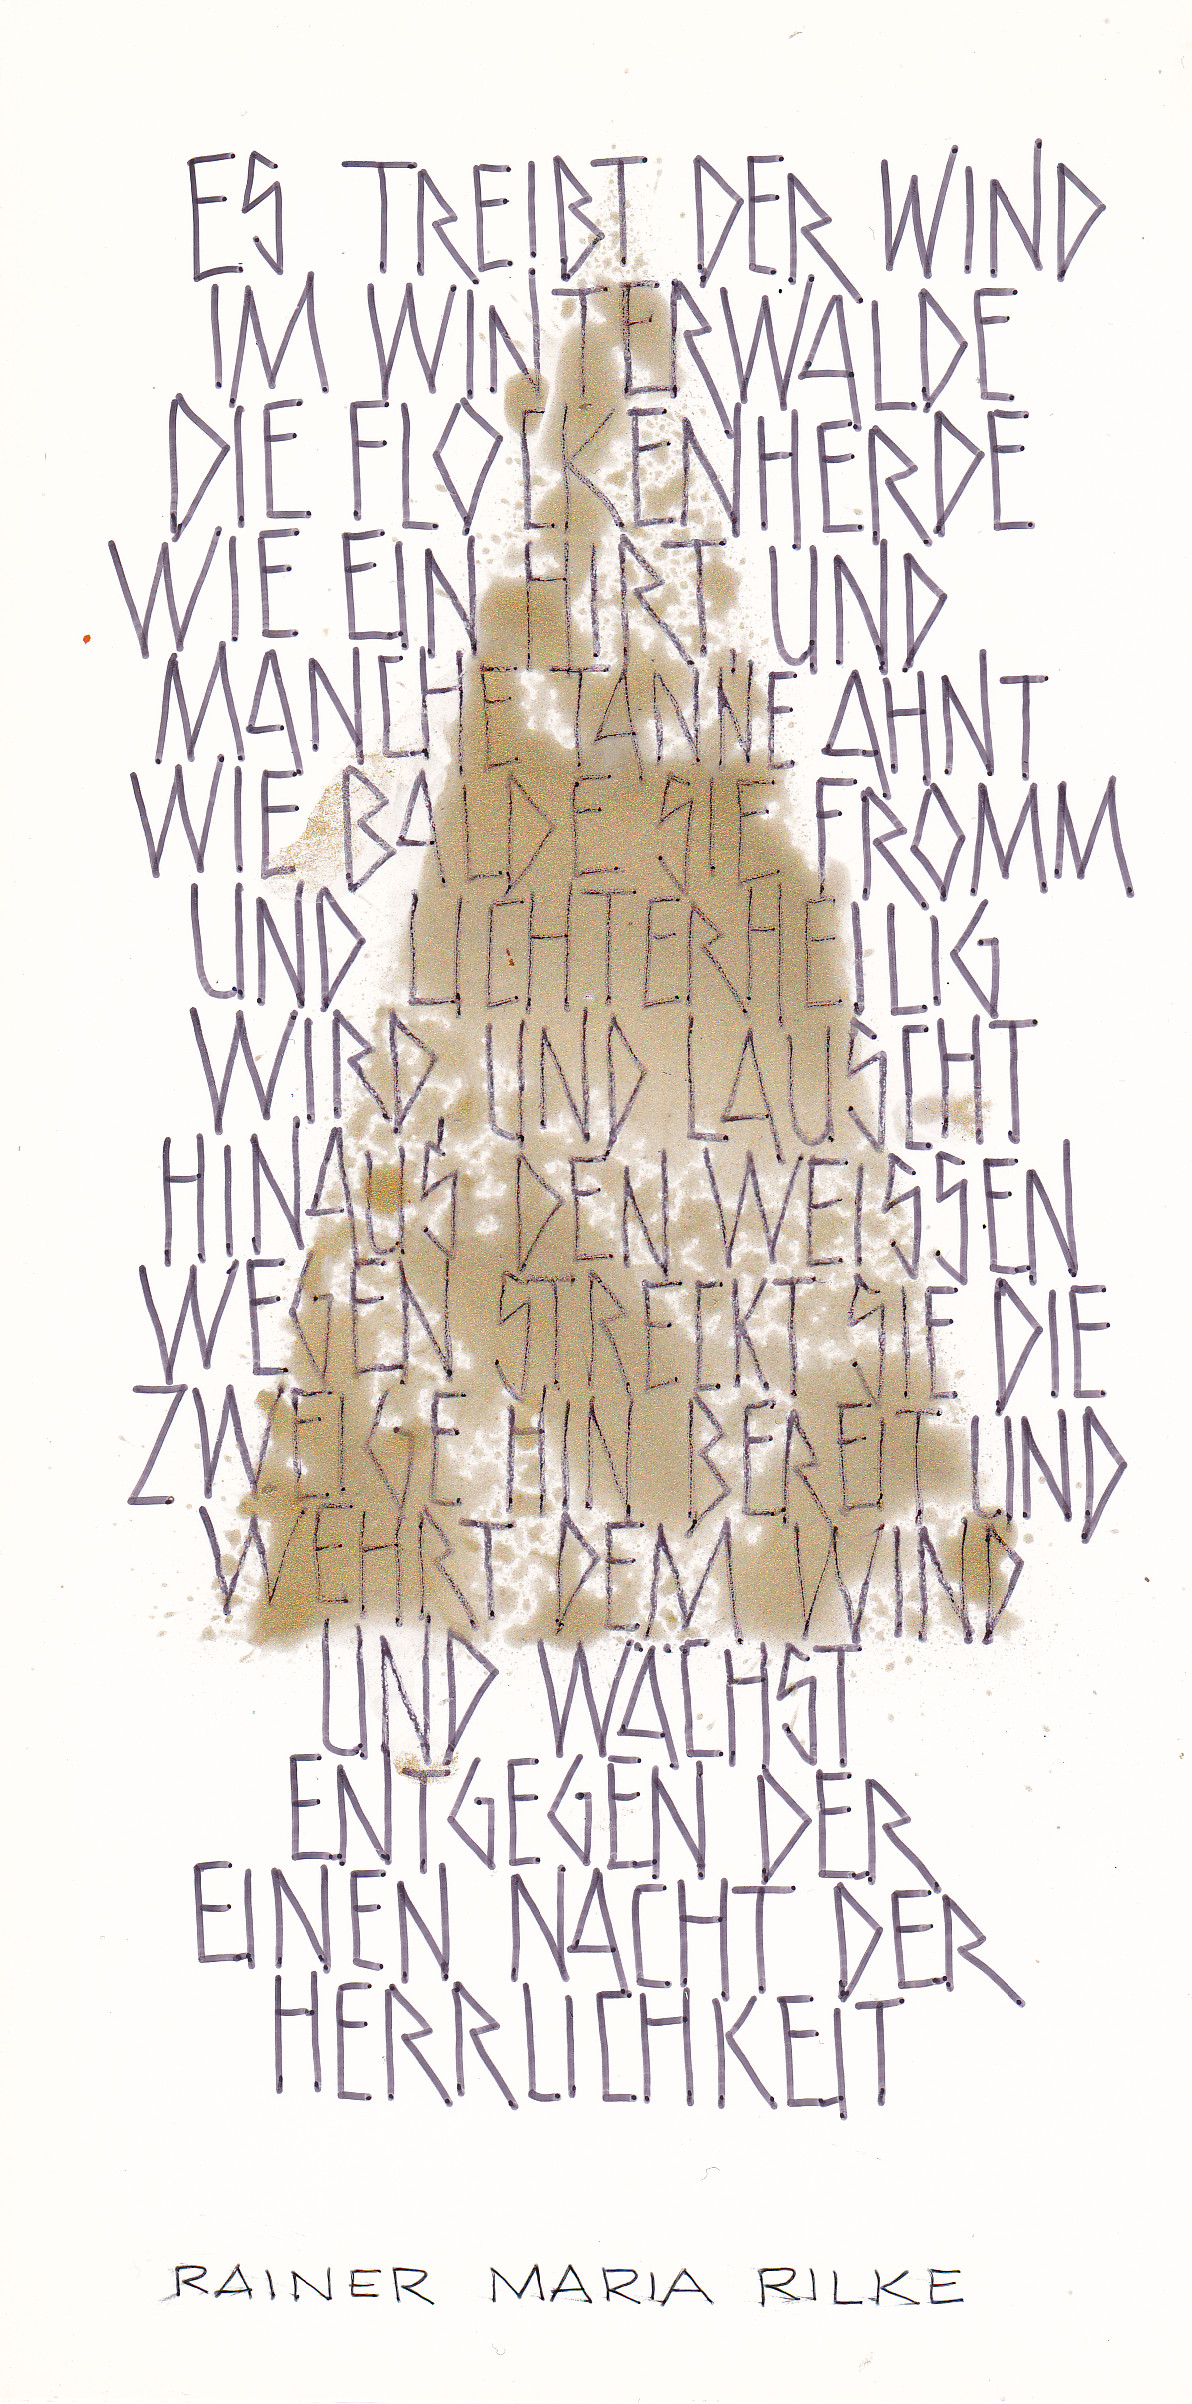 ES TREIBT DER WIND
IM WINTERWALDE
DIE FLOCKENHERDE
WIE EIN HIRT UND
MANCHE TANNE AHNT
WIE BALDE SIE FROMM
UND LICHTERHEILIG
WIRD, UND LAUSCHT
HINAUS DEN WEISSEN
WEGEN STRECKT SIE DIE
ZWEIGE HIN BEREIT UND
WEHRT DEM WIND
UND WÄCHST
ENTGEGEN DER
EINEN NACHT DER
HERRLICHKEIT
RAINER MARIA RILKE